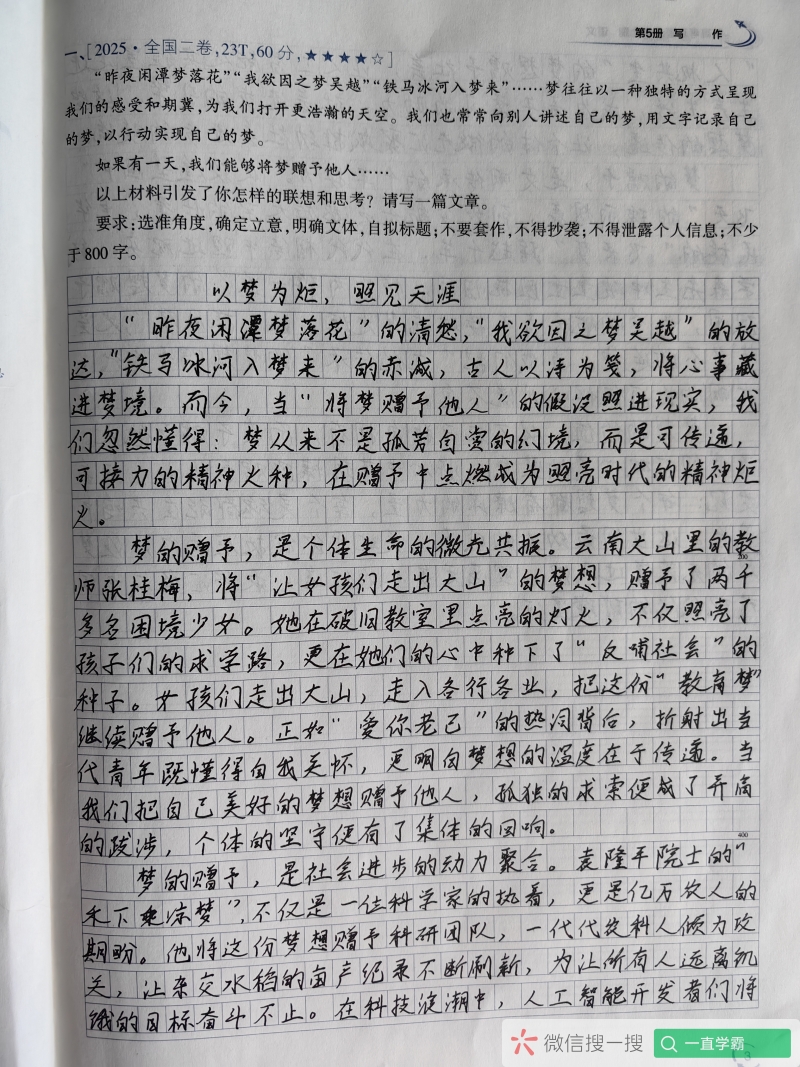 第5册 写 作
一、[2025·全国二卷,23T,60分,★★★★☆]
“昨夜闲潭梦落花”“我欲因之梦吴越”“铁马冰河入梦来”……梦往往以一种独特的方式呈现
我们的感受和期冀,为我们打开更浩瀚的天空。我们也常常向别人讲述自己的梦,用文字记录自己
的梦,以行动实现自己的梦。
如果有一天,我们能够将梦赠予他人……
以上材料引发了你怎样的联想和思考?请写一篇文章。
要求:选准角度,确定立意,明确文体,自拟标题;不要套作,不得抄袭;不得泄露个人信息;不少
于800字。
以梦为炬,照见天涯
“昨夜闲潭梦落花”的清愁,“我欲因之梦吴越”的放
达,“铁马冰河入梦来”的赤诚,古人以诗为笺,将心事藏
进梦境。而今,当“将梦赠予他人”的假设照进现实,我
们忽然懂得:梦从来不是孤芳自赏的幻境,而是可传递,
可接力的精神火种,在赠予中点燃成为照亮时代的精神炬
火。
梦的赠予,是个体生命的微光共振。云南大山里的教
200
师张桂梅,将“让女孩们走出大山”的梦想,赠予了两千
多名困境少女。她在破旧教室里点亮的灯火,不仅照亮了
孩子们的求学路,更在她们的心中种下了“反哺社会”的
种子。女孩们走出大山,走入各行各业,把这份“教育梦”
继续赠予他人。正如“爱你老己”的热词背后,折射出当
代青年既懂得自我关怀,更明白梦想的温度在于传递。当
我们把自己美好的梦想赠予他人,孤独的求索便成了并肩
的跋涉,个体的坚守便有了集体的回响。
400
梦的赠予,是社会进步的动力聚合。袁隆平院士的“
禾下乘凉梦”,不仅是一位科学家的执着,更是亿万农人的
期盼。他将这份梦想赠予科研团队,一代代农科人倾力攻
关,让杂交水稻的亩产纪录不断刷新,为让所有人远离饥
饿的目标奋斗不止。在科技浪潮中,人工智能开发者们将
微信搜一搜 一直学霸
3